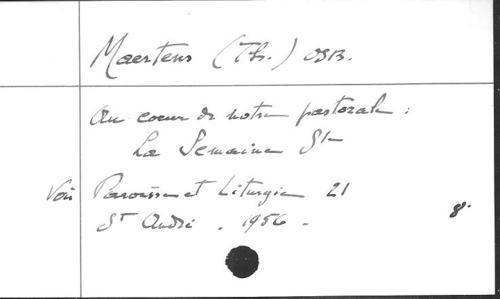 Maertens (Th.) OSB.
Au coeur de notre pastorale :
La Semaine Ste
Voir Paroisse et Liturgie 21
St André . 1956 .
8°